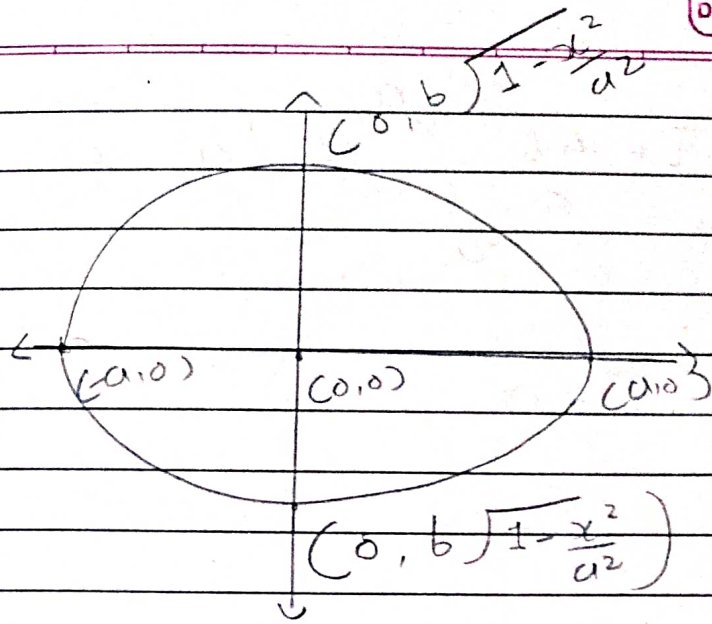 (0, b√1-x²/a²
(-a,0)
(0,0)
(a,0)
(0, b√1-x²/a²)